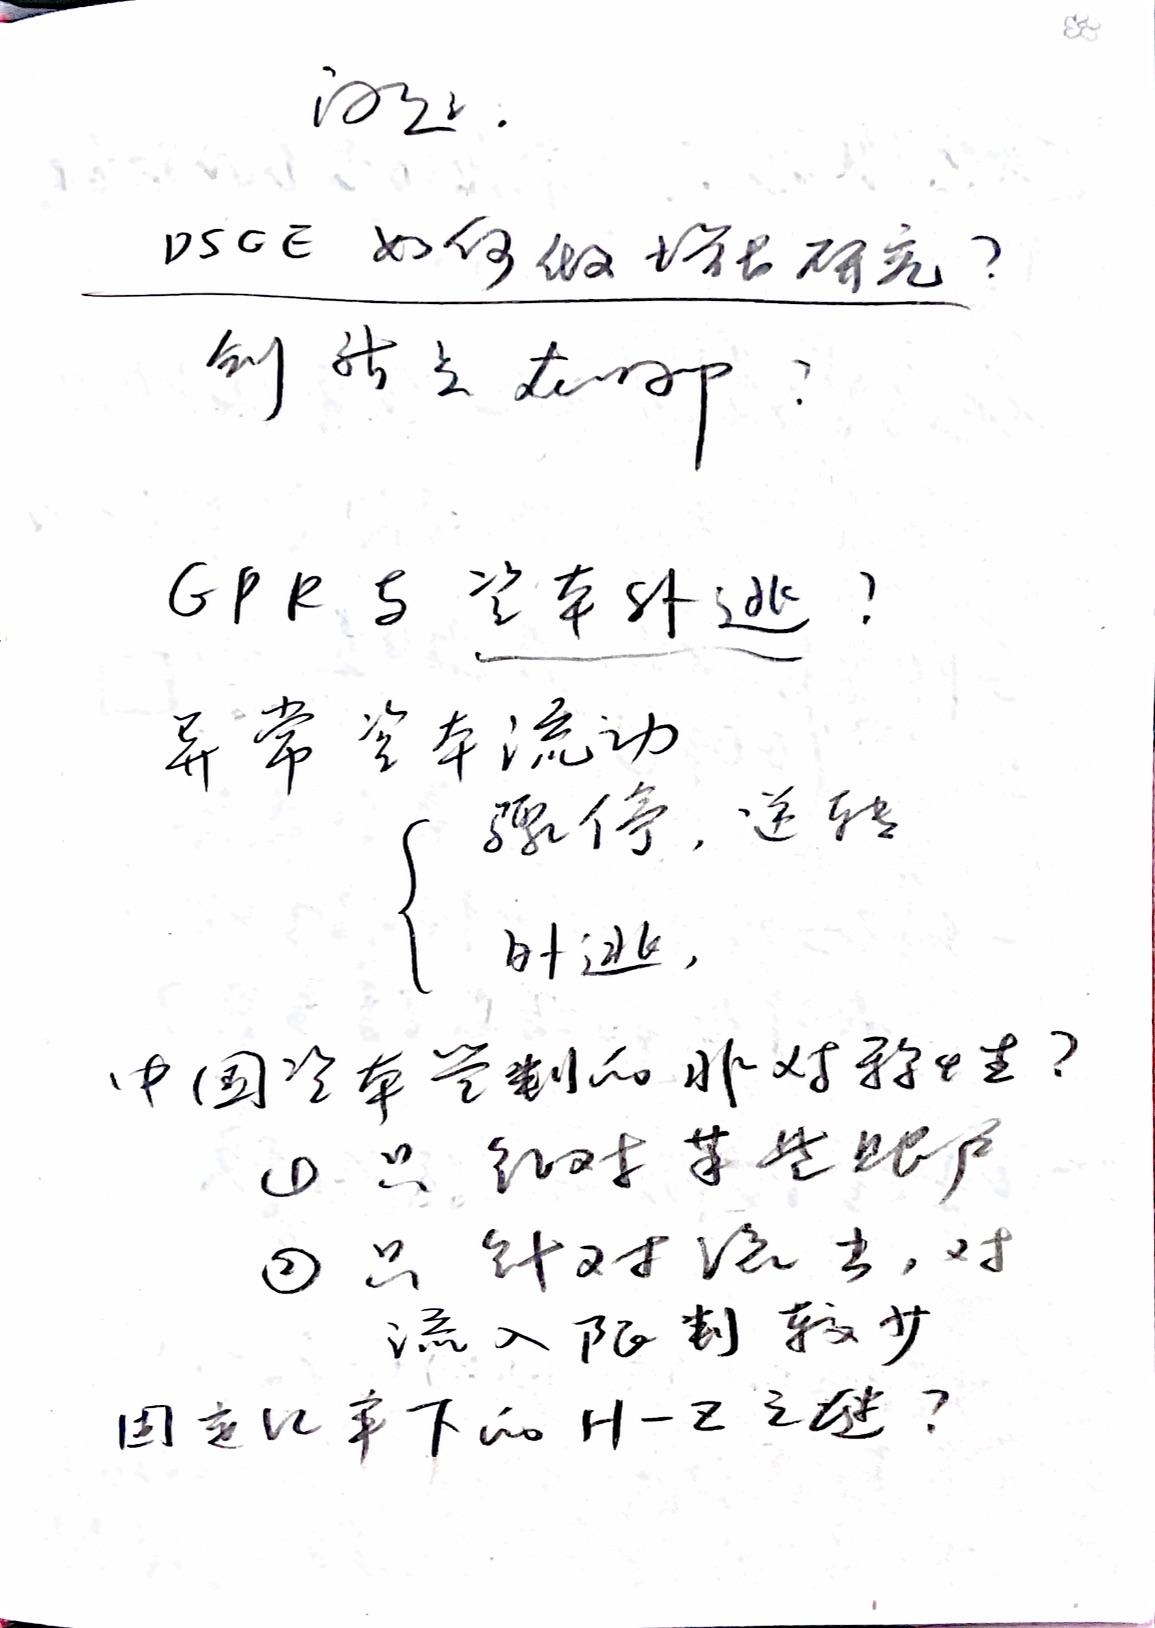 问题.
DSGE 如何做增长研究?
创新点在哪?
GPR 与 资本外逃?
异常资本流动
骤停, 逆转
外逃,
中国资本管制的非对称性?
① 只针对某些账户
② 只针对流出, 对
流入限制较少
固定汇率下的 H-Z 之谜?